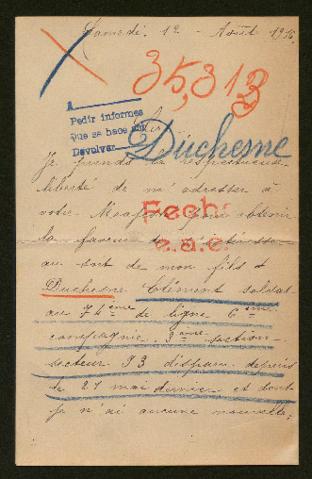 Samedi. 12 - Août 1916
35,313
A
Pedir informes
Que se hace
Devolver
Sire
Duchesne
Je prends la respectueuse
liberté de m'adresser à
votre Majesté pour obtenir
Fecha
la faveur de s'intéresser
e.a.c.
au sort de mon fils
Duchesne Clément soldat
au 74ème de ligne 6ème
compagnie 3ème section
secteur 93 disparu depuis
le 27 mai dernier et dont
je n'ai aucune nouvelle;